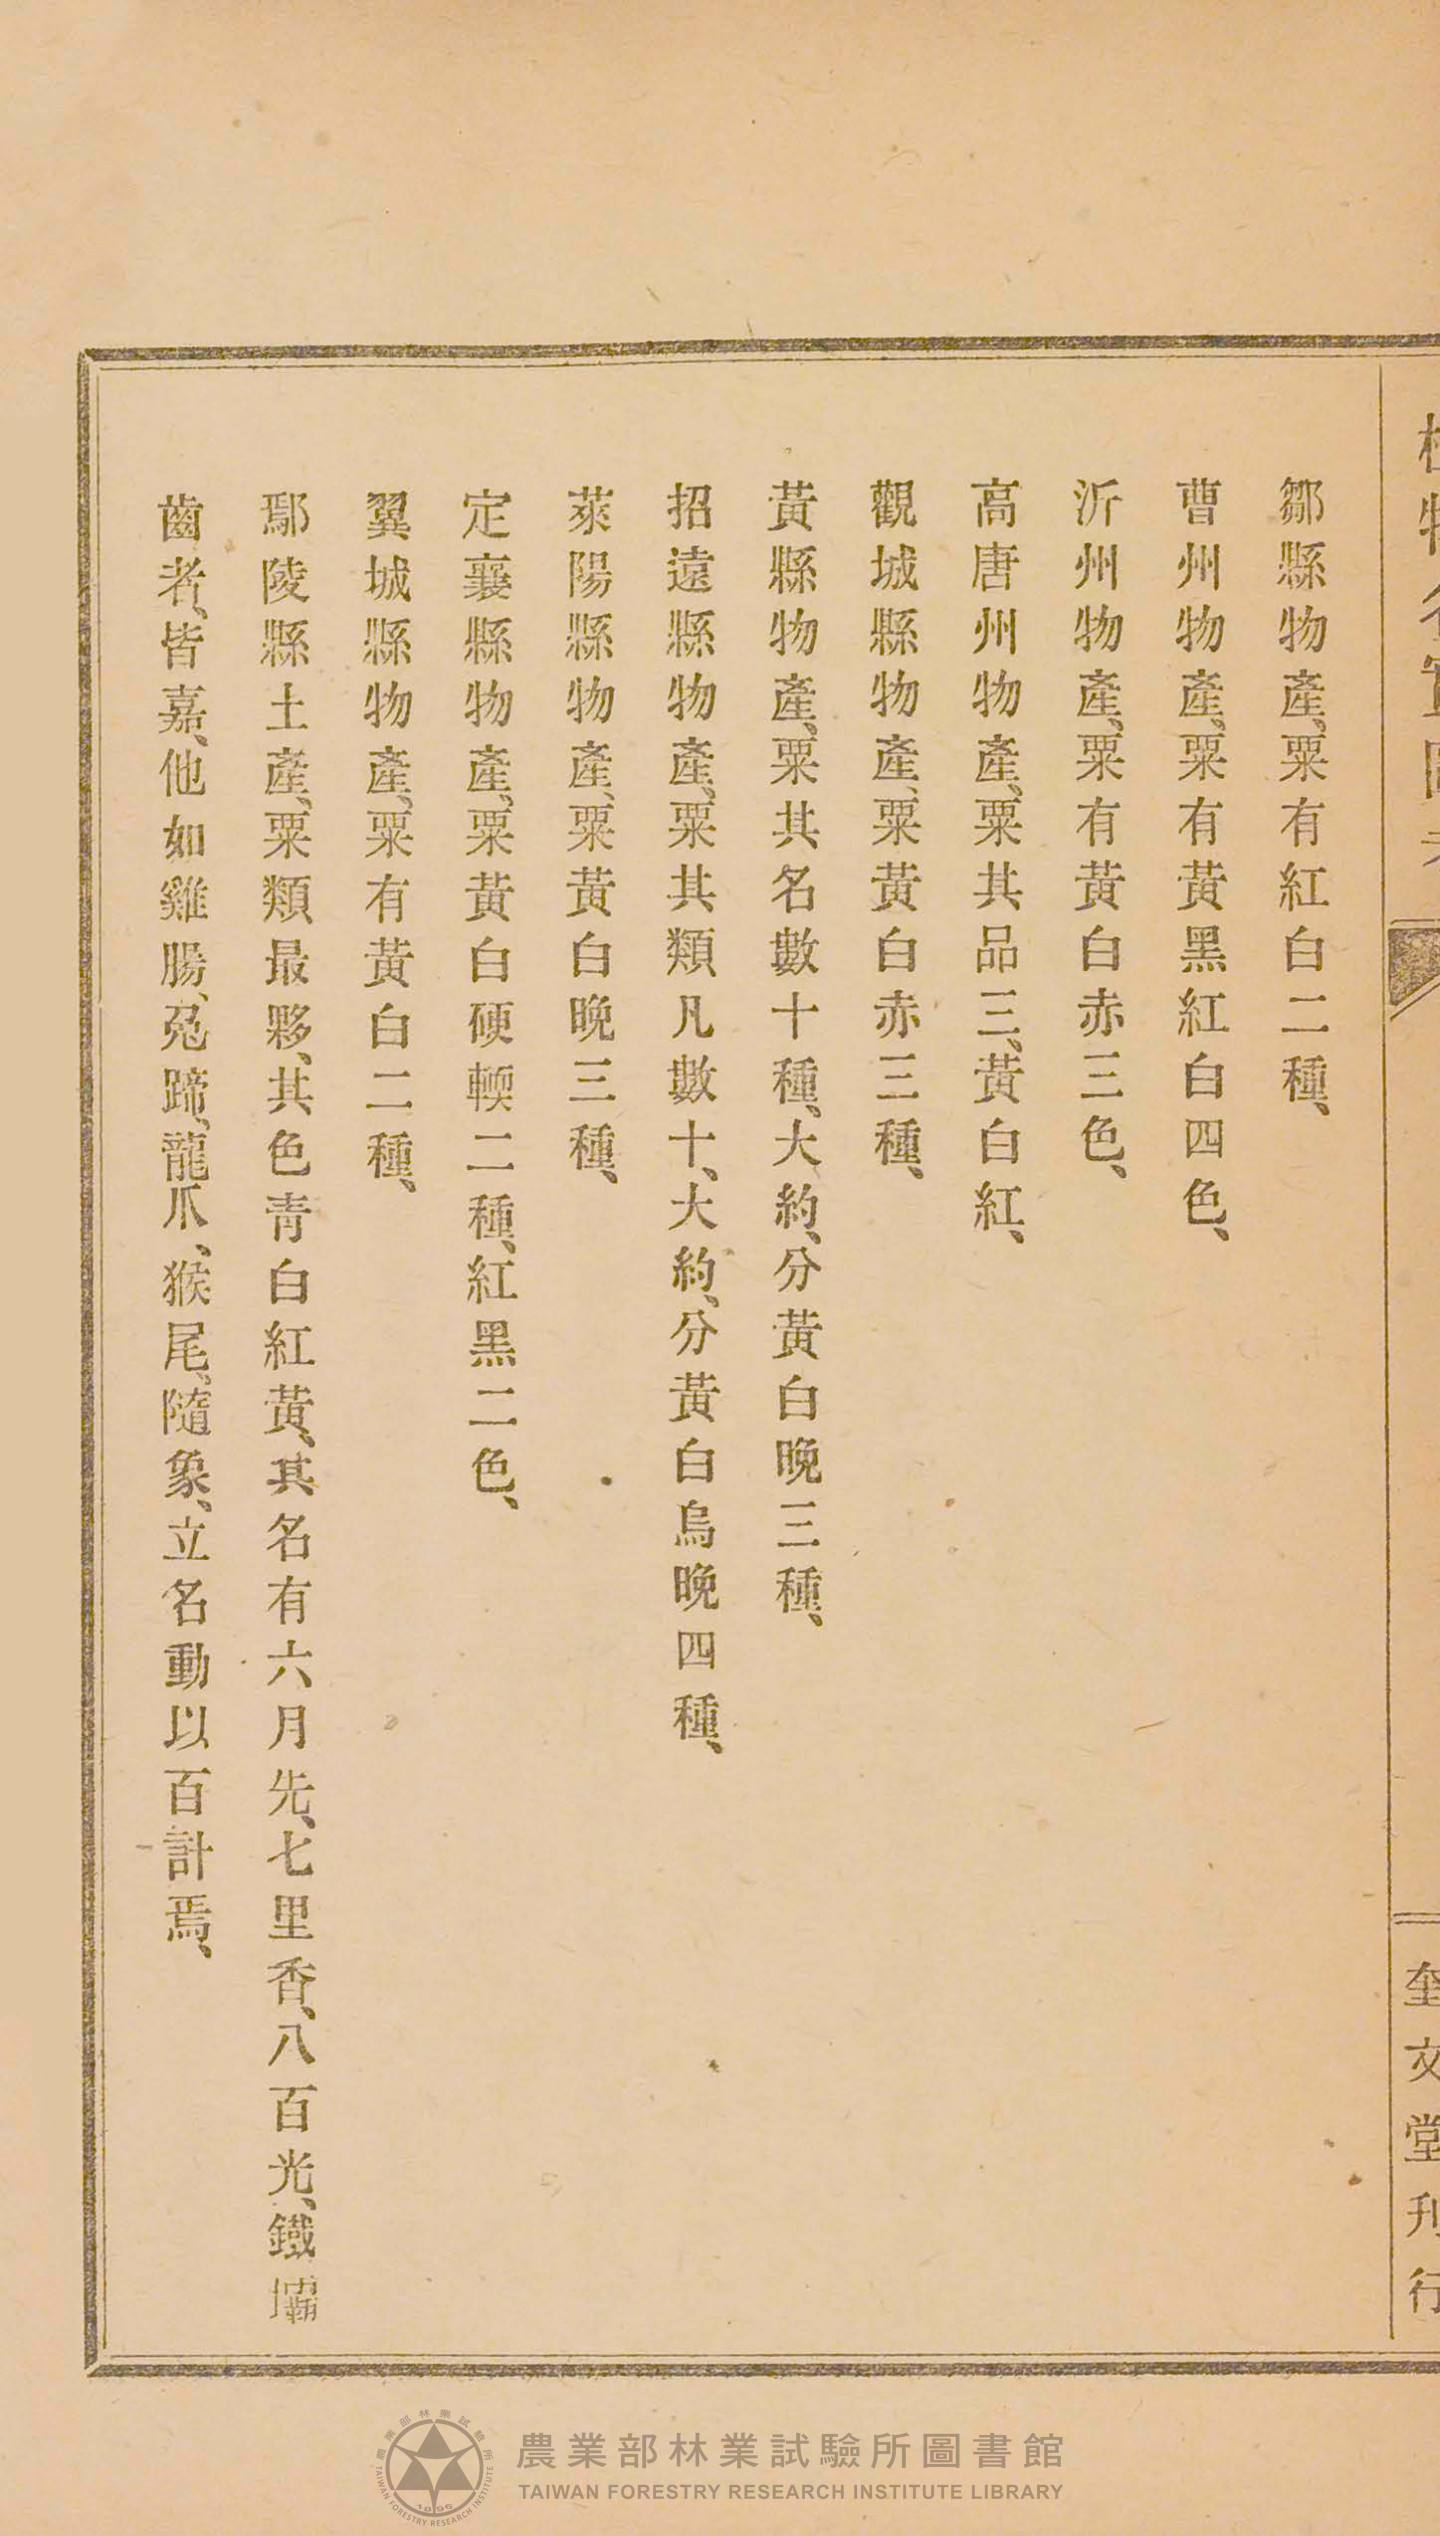 植物名實圖考
奎文堂刊行
鄒縣物產、粟有紅白二種、
曹州物產、粟有黃黑紅白四色、
沂州物產、粟有黃白赤三色、
高唐州物產、粟其品三、黃白紅、
觀城縣物產、粟黃白赤三種、
黃縣物產、粟其名數十種、大約、分黃白晚三種、
招遠縣物產、粟其類凡數十、大約、分黃白烏晚四種、
萊陽縣物產、粟黃白晚三種、
定襄縣物產、粟黃白硬輭二種、紅黑二色、
翼城縣物產、粟有黃白二種、
鄢陵縣土產、粟類最夥、其色青白紅黃、其名有六月先、七里香、八百光、鐵壩
齒者、皆嘉、他如雞腸、兔蹄、龍爪、猴尾、隨象、立名動以百計焉、
農業部林業試驗所圖書館
TAIWAN FORESTRY RESEARCH INSTITUTE LIBRARY
農業部林業試驗所
TAIWAN FORESTRY RESEARCH INSTITUTE
1895